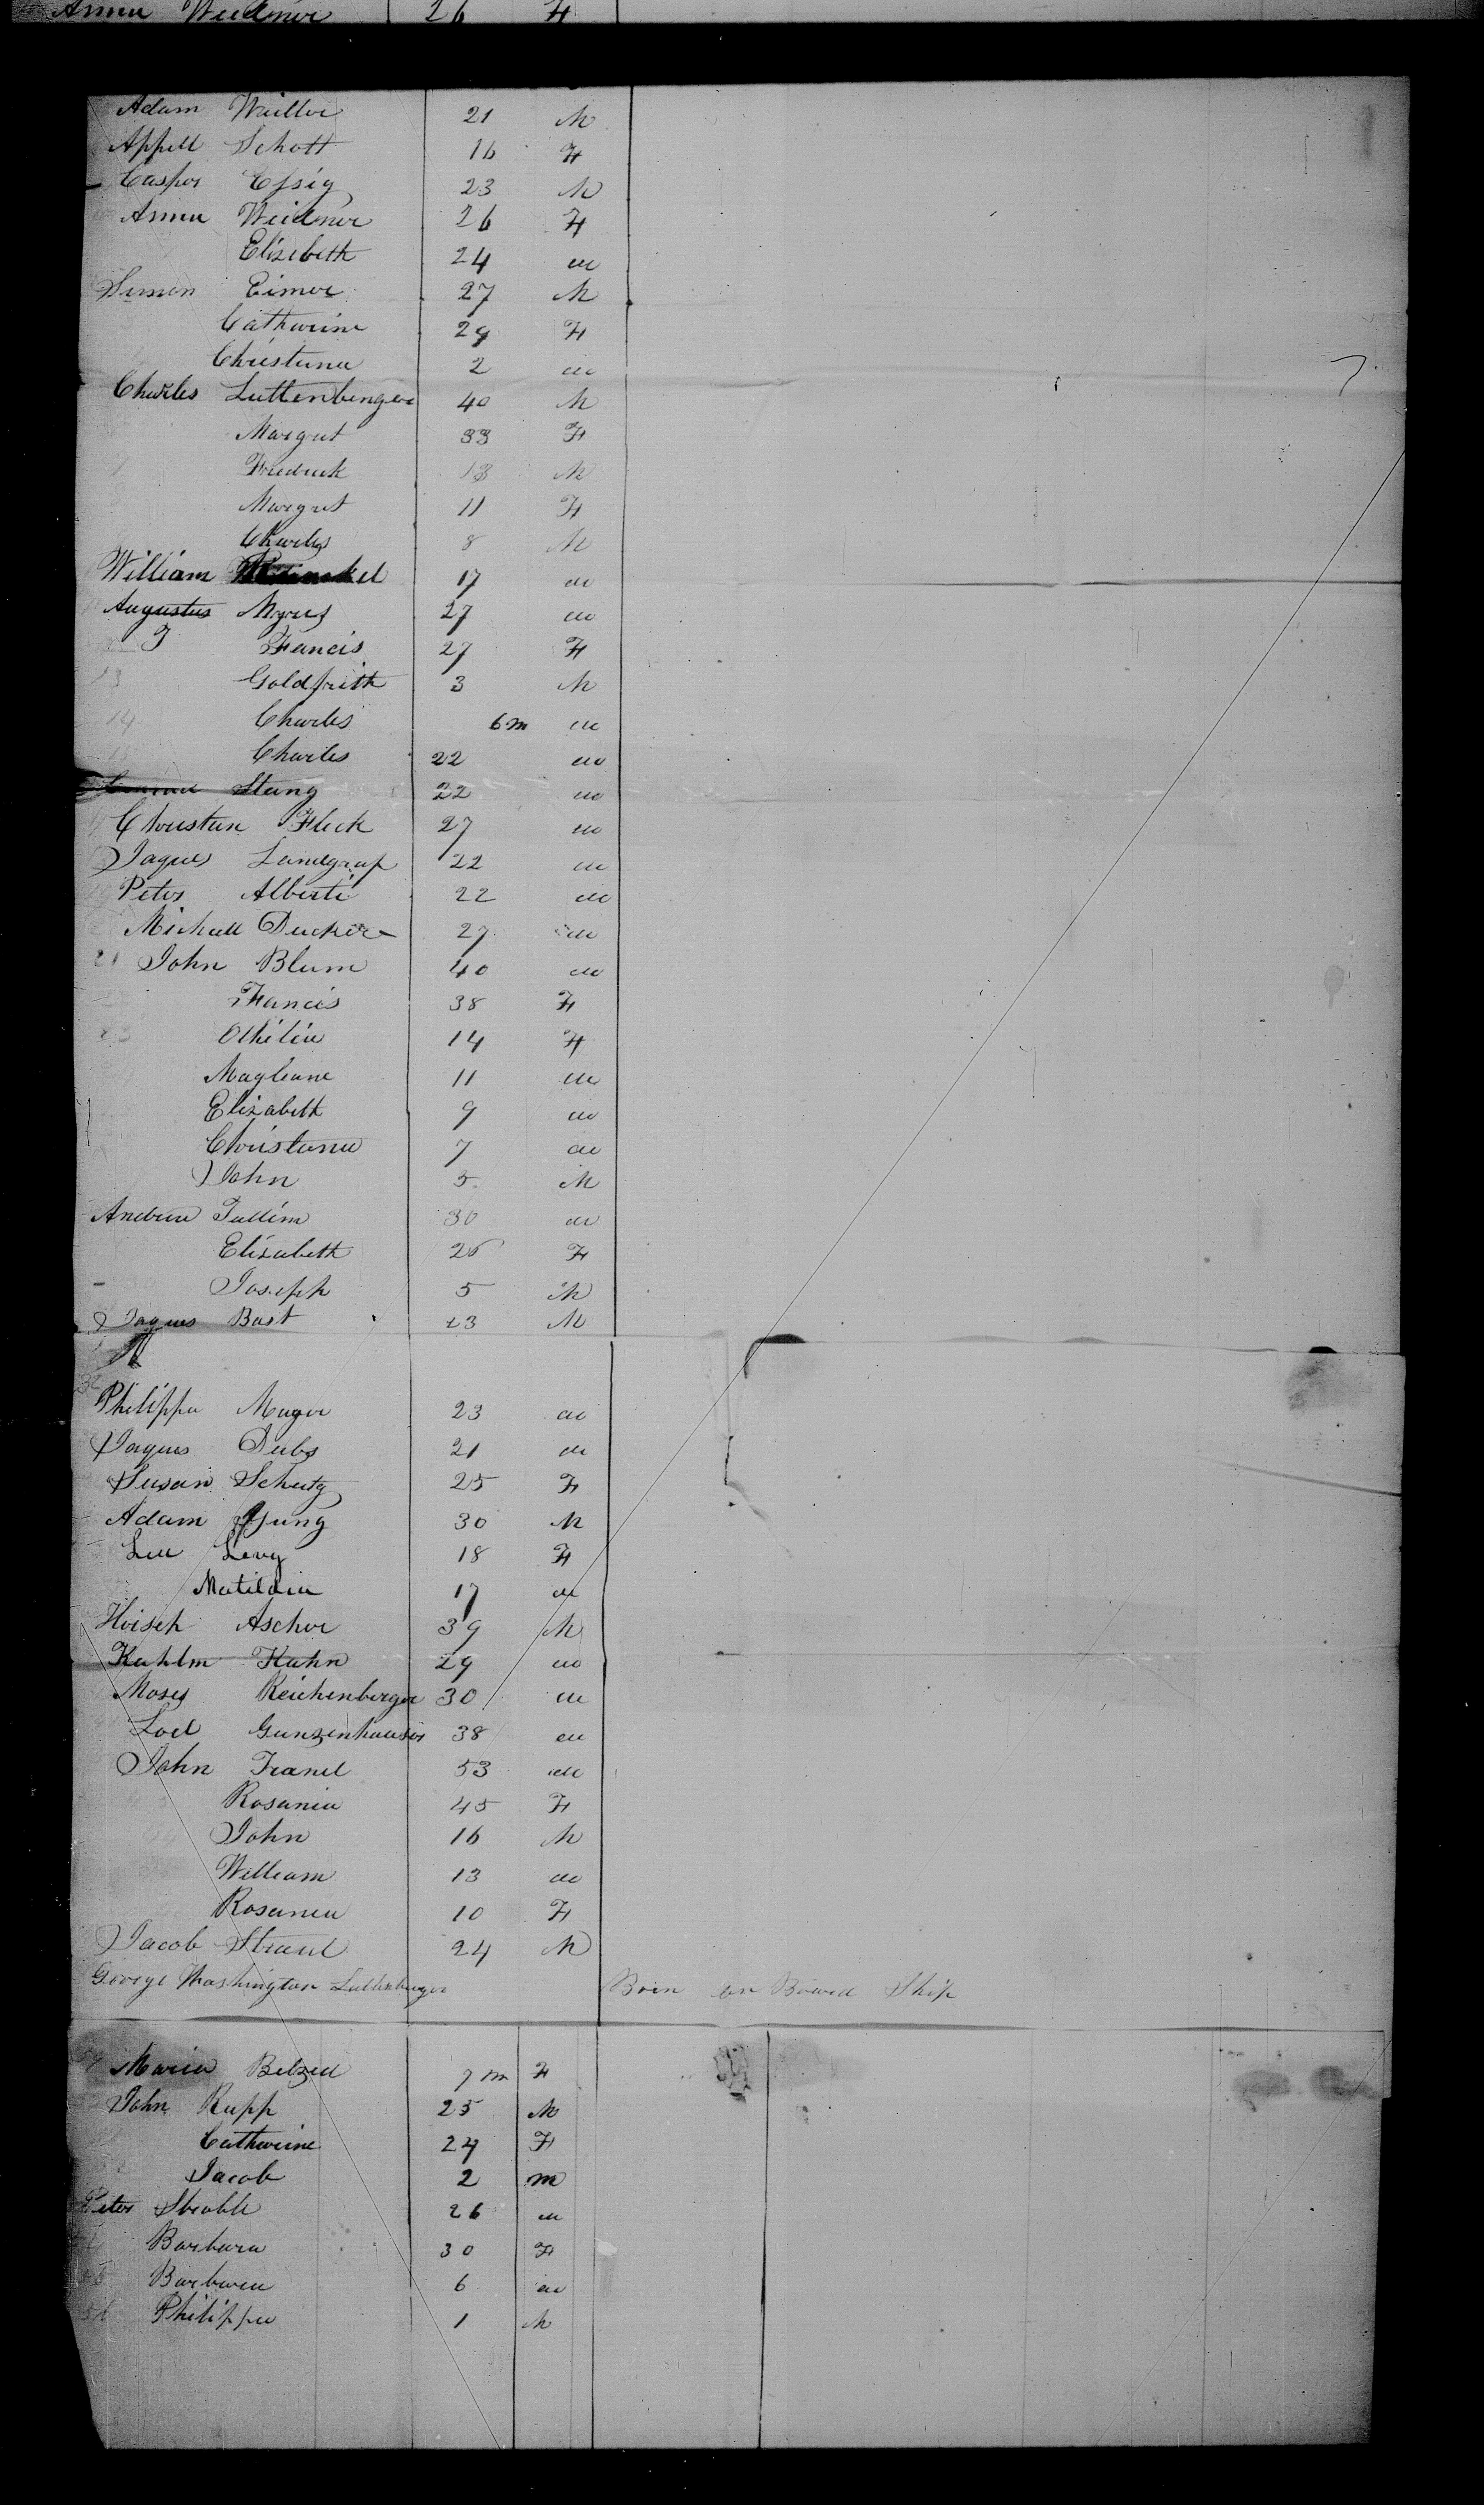 Anna Weidner 26 F
Adam Weiller 21 M
Appell Schott 16 F
Casper Essig 23 M
Anna Weidner 26 F
Elisebeth 24 do
Simon Eimer 27 M
Catharine 29 F
Christiana 2 do
Charles Luttenberger 40 M
Margret 33 F
Fredrick 13 M
Margret 11 F
Charles 8 M
William 17 do
Augustus Myers 27 do
J Francis 27 F
13 Goldfrith 3 M
14 Charles 6 m do
15 Charles 22 do
Stang 22 do
Christian Fleck 27 do
Jaques Landgraf 22 do
Peter Alberti 22 do
Michall Ducker 27 do
21 John Blum 40 do
Francis 38 F
23 Othilia 14 F
Magleane 11 do
Elizabeth 9 do
Christiana 7 do
John 5 M
Andrew Tullim 30 do
Elisabeth 26 F
Joseph 5 M
Jaques Bast 23 M
32
Philippe Mager 23 do
Jaques Dubs 21 do
Susan Schutz 25 F
Adam Yung 30 M
Lea Levy 18 F
Matildia 17 do
Hirsch Ascher 39 M
Kahlm Kahn 29 do
Moses Reichenberger 30 do
Loel Gunzenhauser 38 do
John Franel 53 do
Rosania 45 F
John 16 M
William 13 do
Rosania 10 F
Jacob Straul 24 M
George Washington Luttenberger Born on Board Ship
Maria Betzell 7 m F
John Rupp 25 M
Catharine 24 F
Jacob 2 m
Peter Strohle 26 do
Barbara 30 F
Barbara 6 do
Philippe 1 M